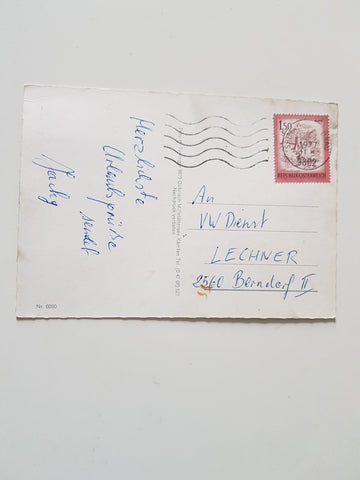 Herzlichste
Urlaubsgrüße
sendet
Jacky
Nr. 6690
Nachdruck verboten
1.50
REPUBLIK ÖSTERREICH
1977
An
VW Dienst
LECHNER
2560 Berndorf II